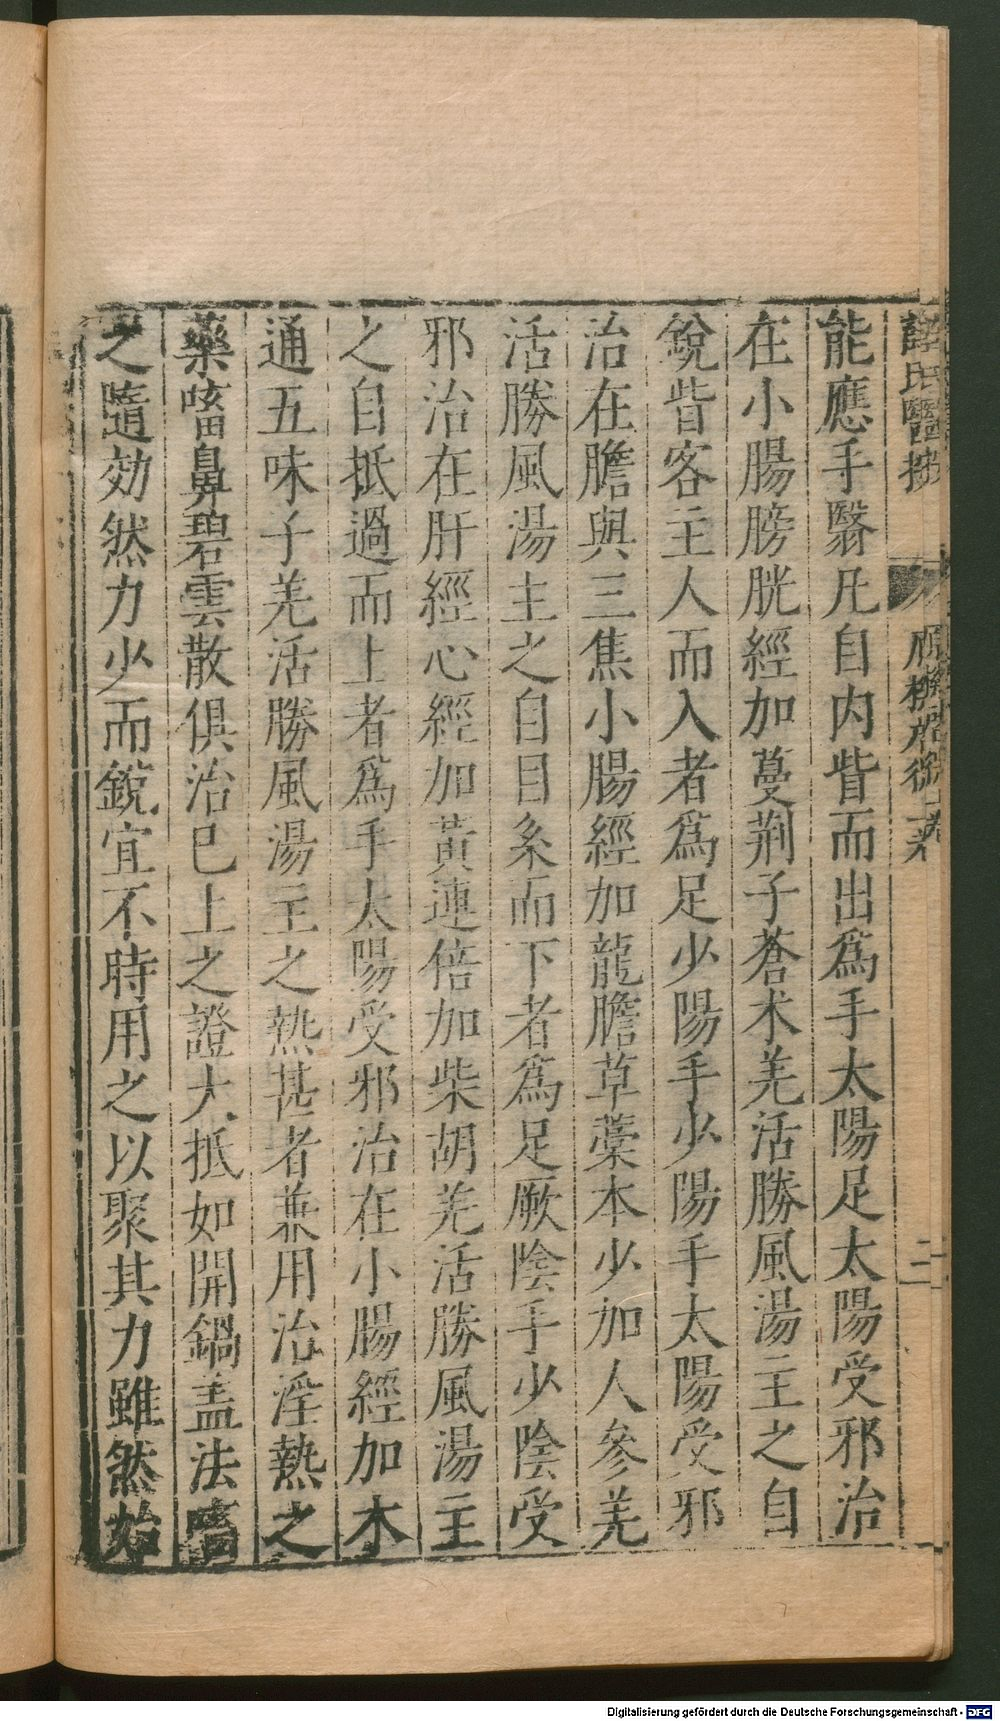 能應手翳凡自内眥而出爲手太陽足太陽受邪治
在小腸膀胱經加蔓荆子蒼术羌活勝風湯主之自
銳眥客主人而入者爲足少陽手少陽手太陽受邪
治在膽與三焦小腸經加龍膽草藁本少加人參羌
活勝風湯主之自目系而下者爲足厥陰手少陰受
邪治在肝經心經加黃連倍加柴胡羌活勝風湯主
之自抵過而上者爲手太陽受邪治在小腸經加木
通五味子羌活勝風湯主之熱甚者兼用治淫熱之
藥㗜鼻碧雲散俱治已上之證大抵如開鍋盖法㗜
之隨効然力少而銳宜不時用之以聚其力雖然始
薛氏醫按
二
Digitalisierung gefördert durch die Deutsche Forschungsgemeinschaft - DFG